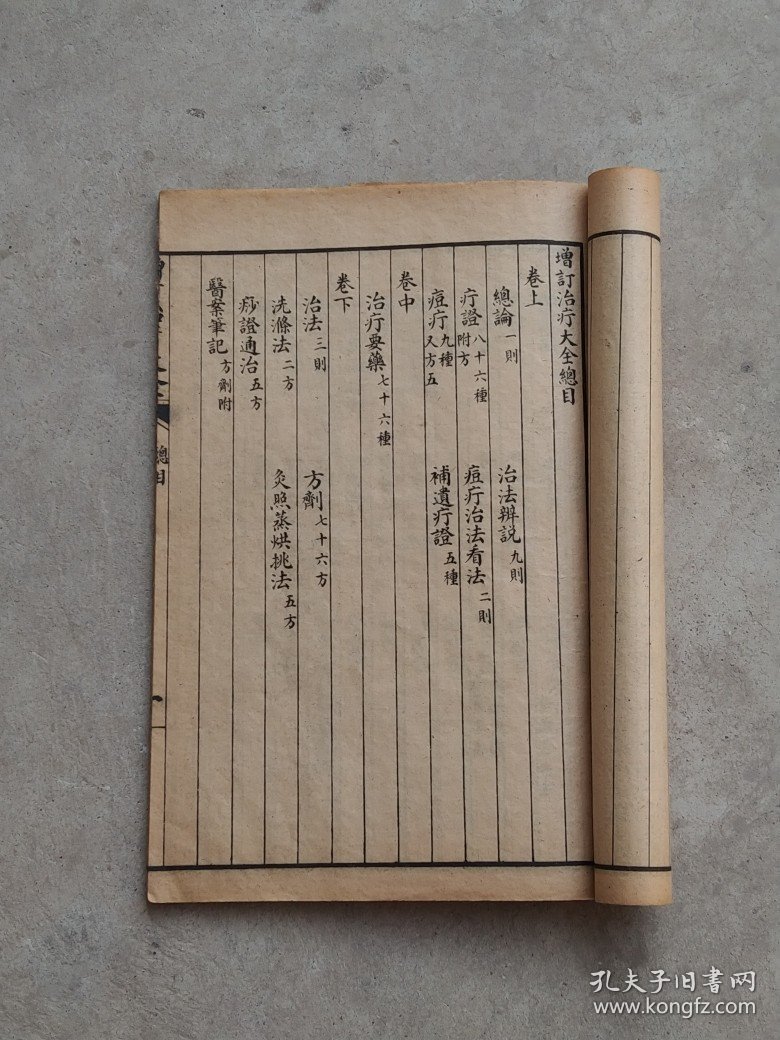 增訂治疔大全總目
卷上
總論一則 治法辨説九則
疔證八十六種附方 痘疔治法看法二則
痘疔九種又方五 補遺疔證五種
卷中
治疔要藥七十六種
卷下
治法三則 方劑七十六方
洗滌法二方 灸照蒸烘挑法五方
痧證通治五方
醫案筆記方劑附
總目
一
孔夫子旧书网
www.kongfz.com